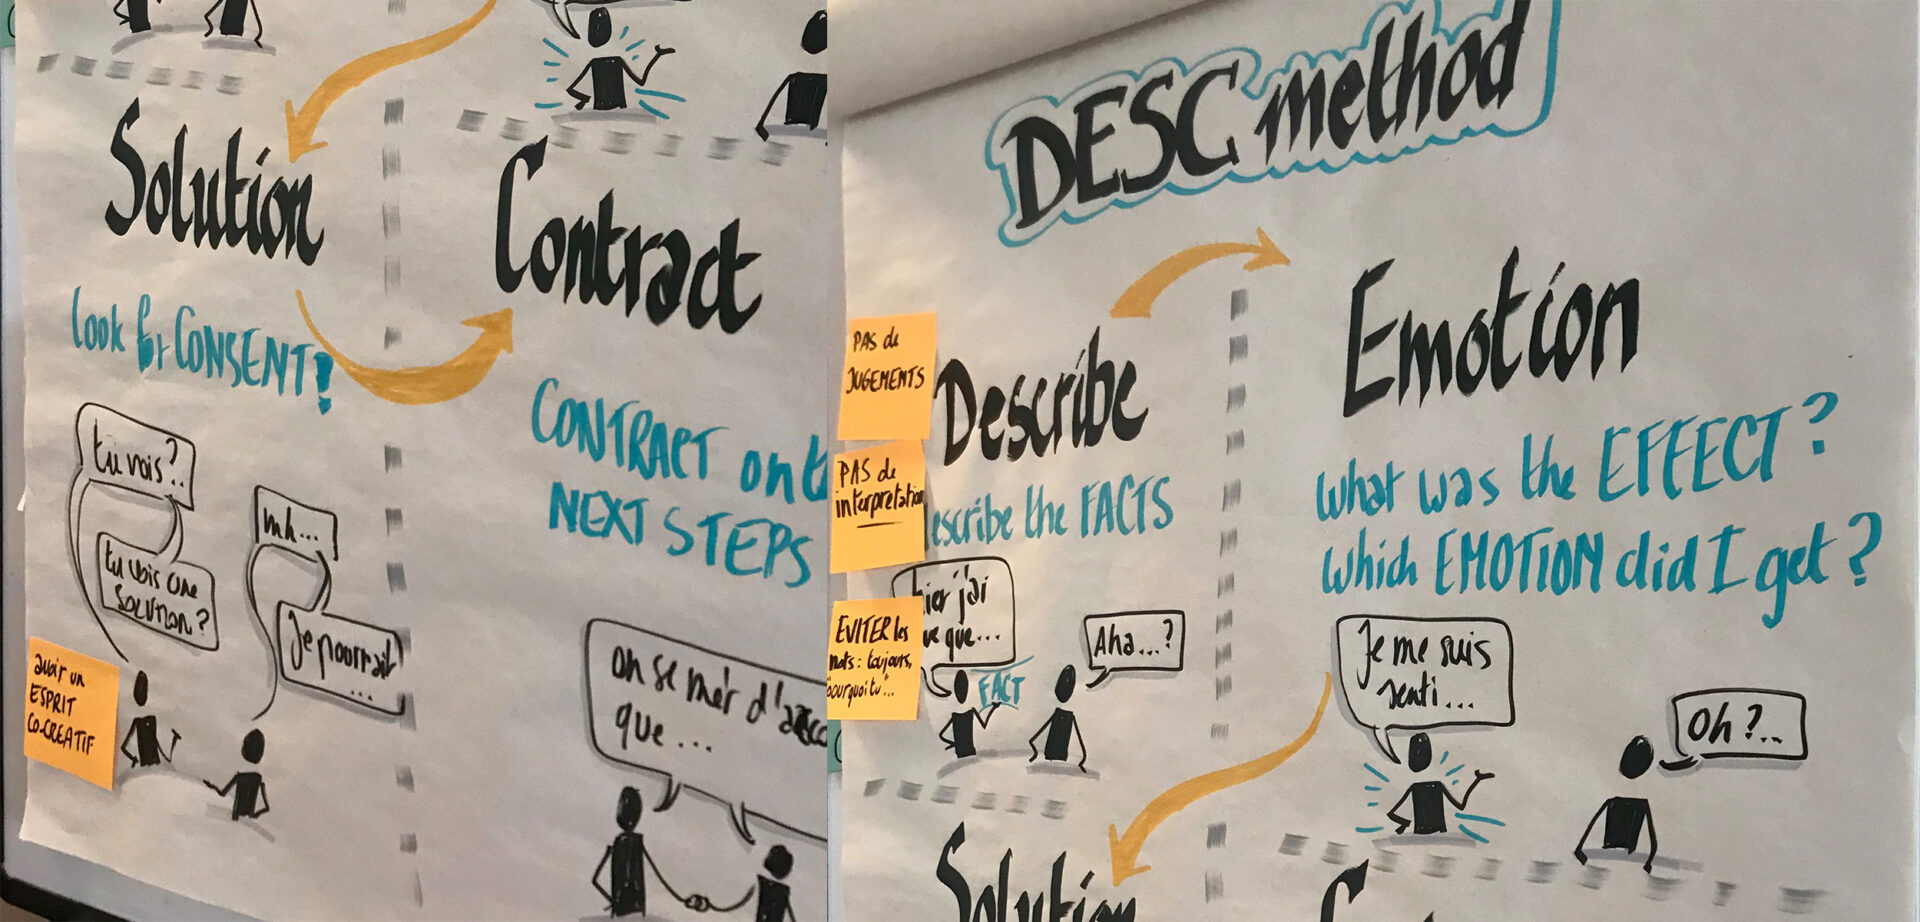 Solution
look for CONSENT!
tu vois?..
tu vois une
SOLUTION?
mh...
Je pourrait
...
avoir un
ESPRIT
CO-CREATIF
Contract
CONTRACT on
NEXT STEPS
on se mer d'acco
que...
DESC method
PAS de
JUGEMENTS
PAS de
interpretation
EVITER les
mots: toujours,
pourquoi tu"...
Describe
escribe the FACTS
hier j'ai
que...
FACT
Aha...?
Emotion
What was the EFFECT?
Which EMOTION did I get?
Je me suis
senti...
Oh?..
Solution
C